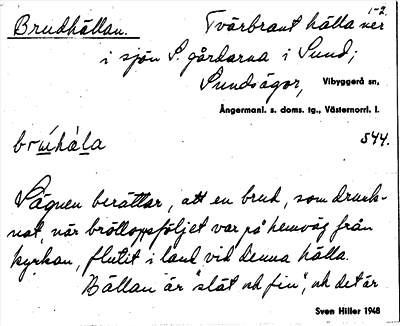 1-2.
Brudhällan. Tvärbrant hälla ner
i sjön S. gårdarna i Sund;
Sundsägor, Vibyggerå sn,
Ångermanl. s. doms. tg., Västernorrl. l.
544.
brụ́hä̀la
Sägnen berättar, att en brud, som drunk-
nat, när bröllopsföljet var på hemväg från
kyrkan, flutit i land vid denna hälla.
Hällan är "slät och fin", och det är
Sven Hiller 1948